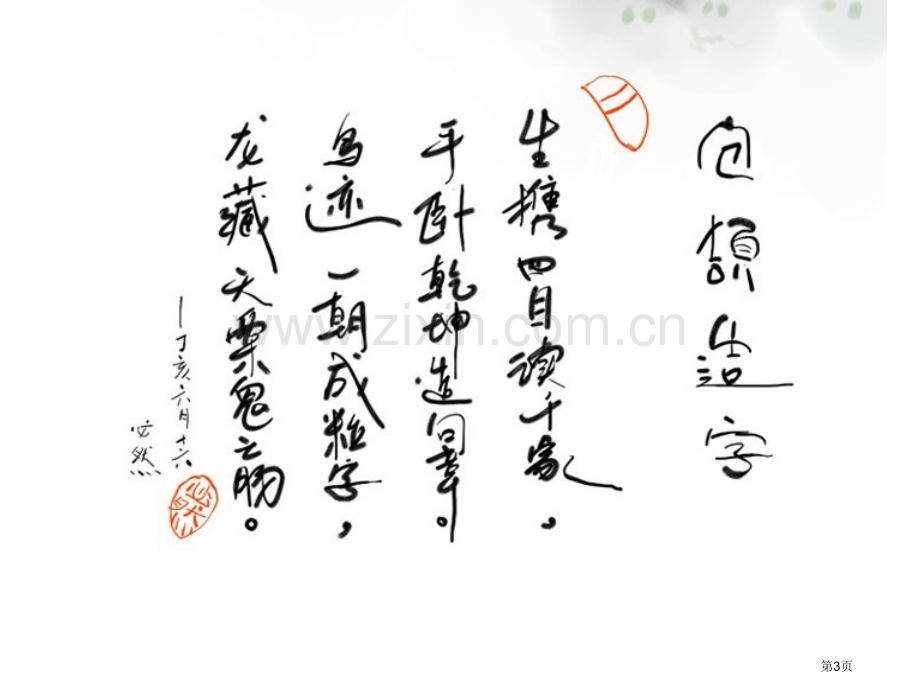 仓頡造字
生携四目读千象，
平卧乾坤造句章。
鸟迹一朝成粒字，
龙藏天粟鬼亡肠。
—丁亥六月十六
必然
必然
www.zixin.com.cn
第3页